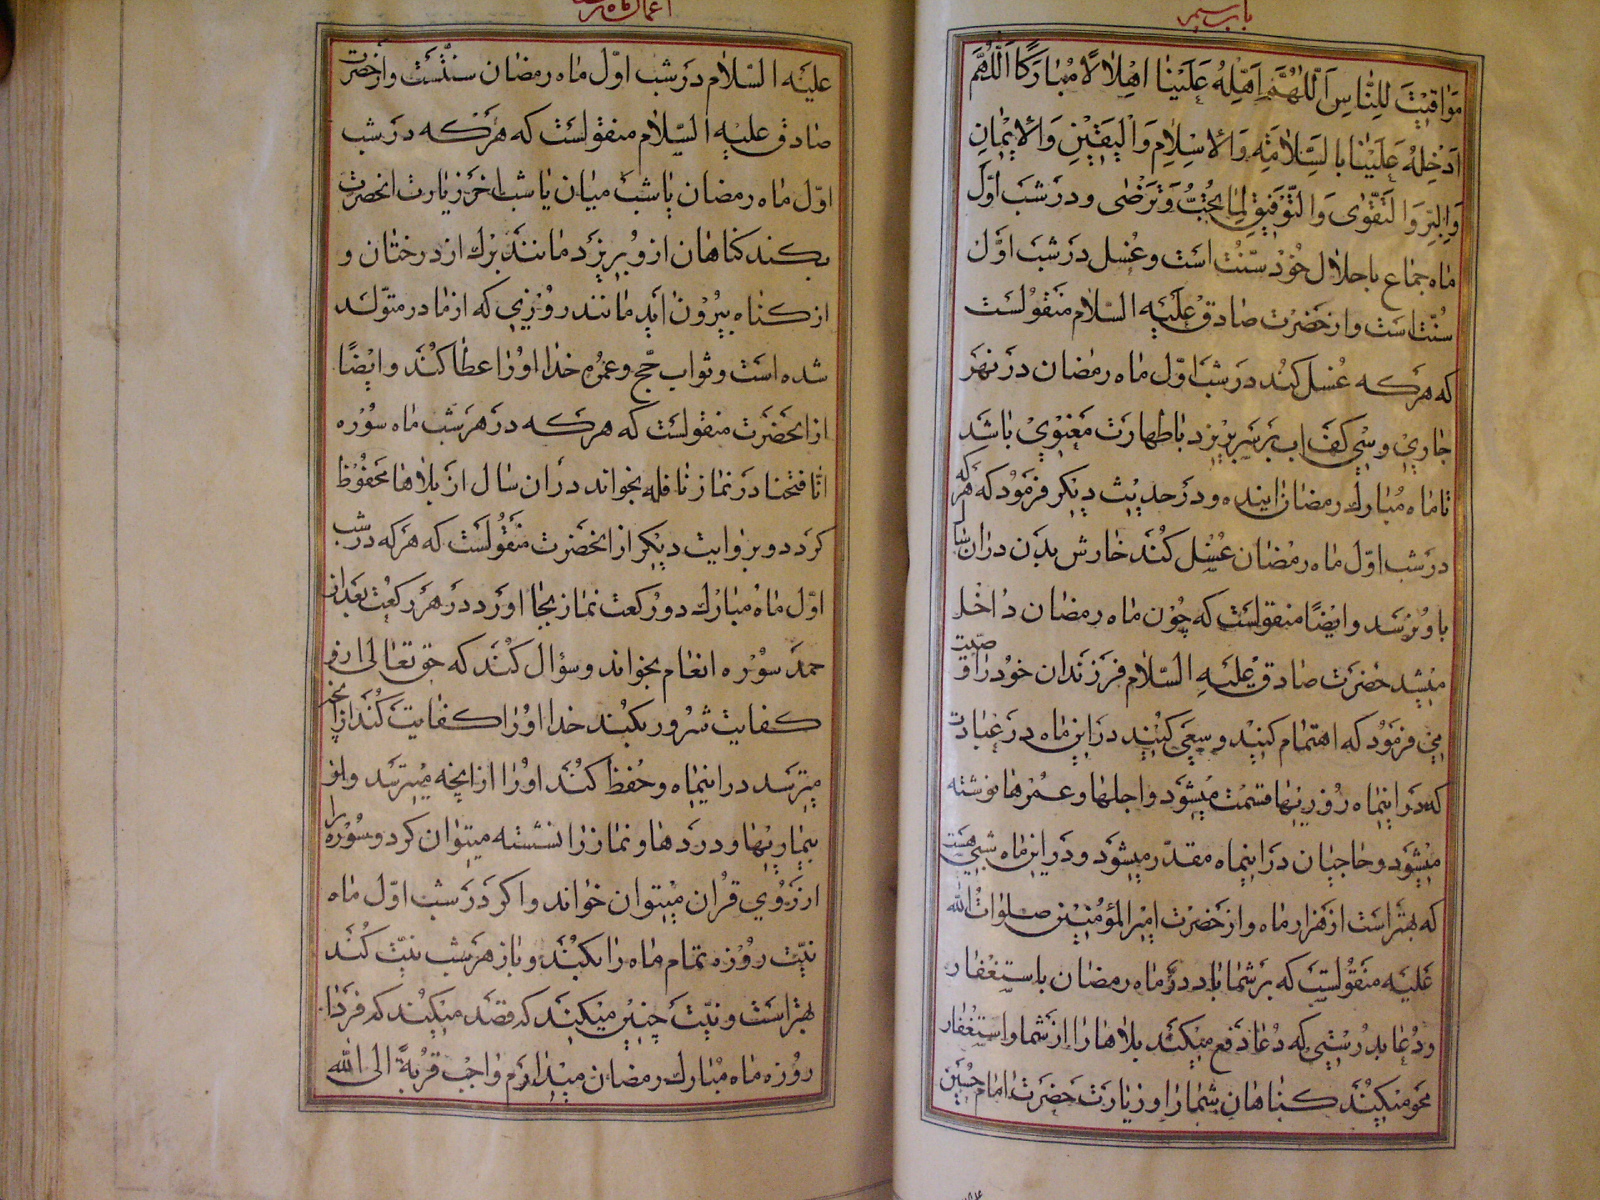 باب سیم
مَوٰاقیٖتَ لِلنّٰاسِ اَللّٰهُمَّ اَهِلَّهُ عَلَیْنٰا اهْلٰالاً مُبٰارَکًا اَللّٰهُمَّ
اَدْخِلْهُ عَلَیْنٰا بالسَّلاٰمَةِ وَالاْسْلٰامِ وَالْیَقیٖنِ وَالاْیٖمٰانِ
وَالْبِرِّ وَالتَّقْوٰی وَالتَّوْفیٖقِ لِمٰا تُحِبُّ وَتَرْضٰی ودرشب اوّل
ماه جماع باحلال خود سنّت است وغسل درشب اوّل
سنّت است واز حضرت صادق علیه السّلام منقولست
که هرکه غسل کند درشب اوّل ماه رمضان درنهر
جاری وسی کف اب برسر بریزد باطهارت معنوی باشد
تاماه مبارك رمضان اینده ودرحدیث دیکر فرمود که هرکه
درشب اوّل ماه رمضان غسل کند خارش بدن دران سال
باو نرسد وایضًا منقولست که چون ماه رمضان داخل
میشد حضرت صادق علیه السّلام فرزندان خودرا وصیّت
می فرمود که اهتمام کنید وسعی کنید دراین ماه درعبادت
که دراینماه روزیها قسمت میشود واجلها وعمرها نوشته
میشود وحاجیان دراینماه مقدّر میشود ودراین ماه شبی هست
که بهتراست ازهزار ماه واز حضرت امیرالمؤمنین صلوات الله
علیه منقولست که برشما باد درماه رمضان باستغفار
ودعا بدرستی که دعا دفع میکند بلاهارا ازشما واستغفار
محو میکند کناهان شمارا وزیارت حضرت امام حسین
اعمال ماه رمضان
علیه السّلام درشب اوّل ماه رمضان سنّتست وازحضرت
صادق علیه السّلام منقولست که هرکه درشب
اوّل ماه رمضان یاشب میان یاشب اخر زیارت انحضرت
بکند کناهان ازو بریزد مانند برك ازدرختان و
ازکناه بیرون اید مانند روزی که ازمادر متولّد
شده است وثواب حجّ وعمره خدا اورا عطا کند وایضًا
ازانحضرت منقولست که هرکه درهرشب ماه سوره
انّا فتحنا درنماز نافله بخواند دران سال ازبلاها محفوظ
کردد وبروایت دیکر ازانحضرت منقولست که هرکه درشب
اوّل ماه مبارك دورکعت نماز بجا اورد درهررکعت بعدازا
حمد سوره انعام بخواند وسؤال کند که حق تعالی ارو
کفایت شرور بکند خدا اورا کفایت کند ازانچه
میترسد دراینماه وحفظ کند اورا ازانچه میترسد واز
بیماریها ودردها ونمازرا نشسته میتوان کرد وسوره را
ازروی قران میتوان خواند واکر درشب اوّل ماه
نیّت روزه تمام ماه را بکند وباز هرشب نیّت کند
بهتراست ونیّت چنین میکند که قصد میکند که فردا
روزه ماه مبارك رمضان میدارم واجب قربةً الی الله